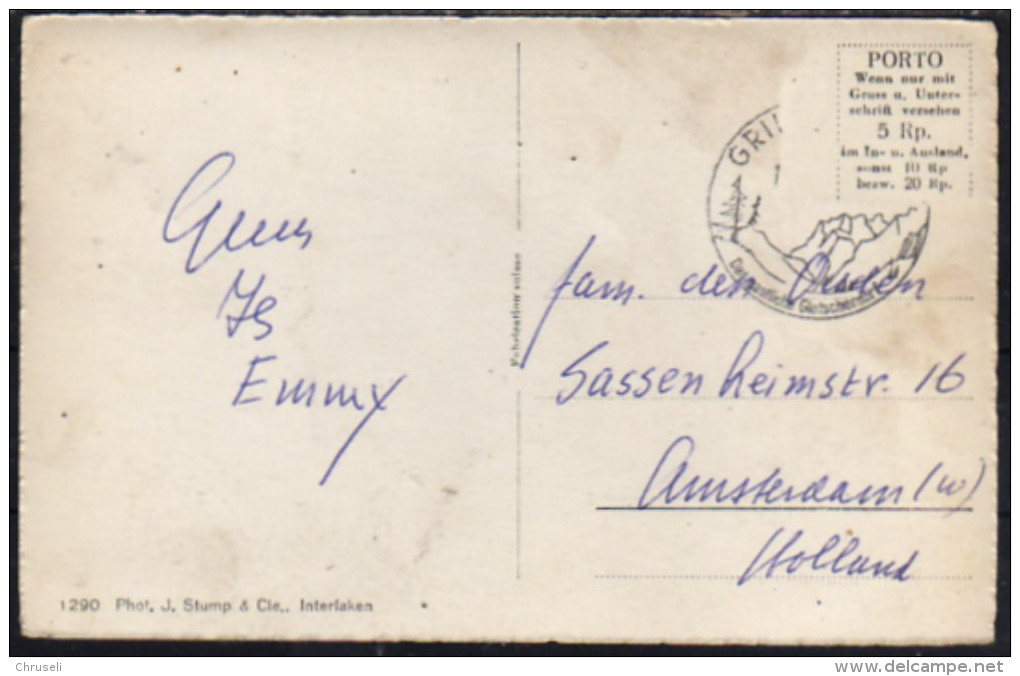 PORTO
Wenn nur mit
Gruss u. Unter-
schrift versehen
5 Rp.
im In- u. Ausland,
sonst 10 Rp
bezw. 20 Rp.
GRI
Gletscherdorf
Emmy
Fabrication suisse
fam. den Ouden
Sassenheimstr. 16
Amsterdam (W)
Holland
1290 Phot. J. Stump & Cie., Interlaken
Chruseli
www.delcampe.net